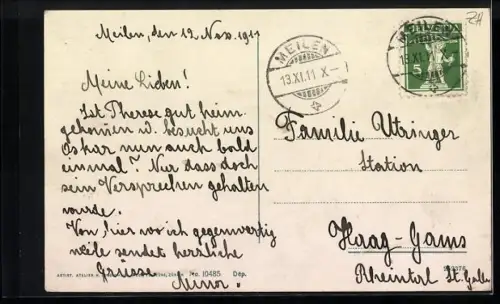 Meilen, den 12 Nov. 1911
RH
MEILEN
13.XI.11 X-
MEILEN
13.XI.
5
Meine Lieben!
Ist Therese gut heim
gekommen u. besucht uns
Oskar nun auch bald
einmal? Nur dass doch
sein Versprechen gehalten
wurde.
Von hier wo ich gegenwertig
weile sendet herzliche
Grüsse
Familie Utzinger
Station
Haag-Gams
Rheintal St. Gallen
No. 10485 Dép.